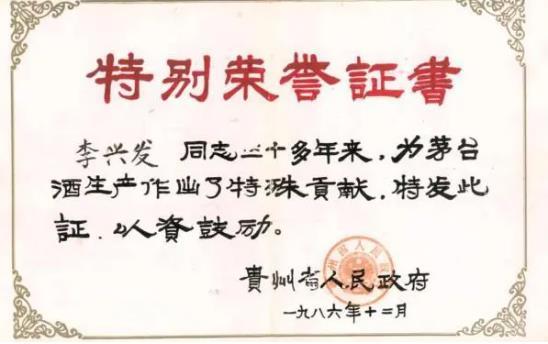 特别荣誉証書
李兴发 同志三十多年来，为茅台
酒生产作出了特殊貢献，特发此
証，以資鼓励。
貴州省人民政府
一九八六年十二月